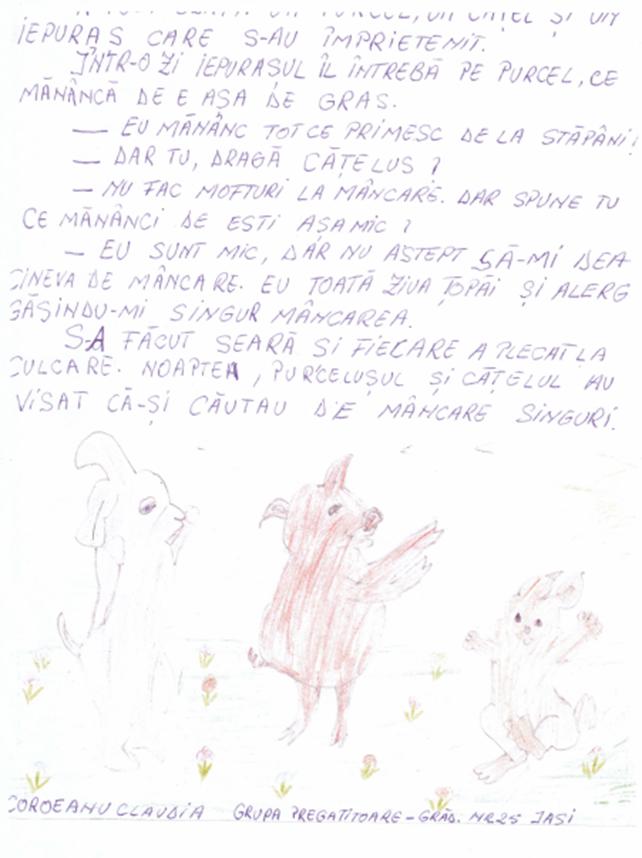 A FOST ODATĂ UN PURCEL, UN CĂȚEL ȘI UN
IEPURAS CARE S-AU ÎMPRIETENIT.
ÎNTR-O ZI IEPURASUL ÎL ÎNTREBĂ PE PURCEL, CE
MĂNÂNCĂ DE E AȘA DE GRAS.
— EU MĂNÂNC TOT CE PRIMESC DE LA STĂPÂNI!
— DAR TU, DRAGĂ CĂȚELUS ?
— NU FAC MOFTURI LA MÂNCARE. DAR SPUNE TU
CE MĂNÂNCI DE ESTI AȘA MIC ?
— EU SUNT MIC, DAR NU AȘTEPT SĂ-MI DEA
CINEVA DE MÂNCARE. EU TOATĂ ZIUA ȚOPĂI ȘI ALERG
GĂSINDU-MI SINGUR MÂNCAREA.
SA FĂCUT SEARĂ SI FIECARE A PLECAT LA
CULCARE. NOAPTEA, PURCELUȘUL ȘI CĂȚELUL AU
VISAT CĂ-ȘI CĂUTAU DE MÂNCARE SINGURI.
COROEANU CLAUDIA GRUPA PREGATITOARE - GRĂD. NR25 IASI